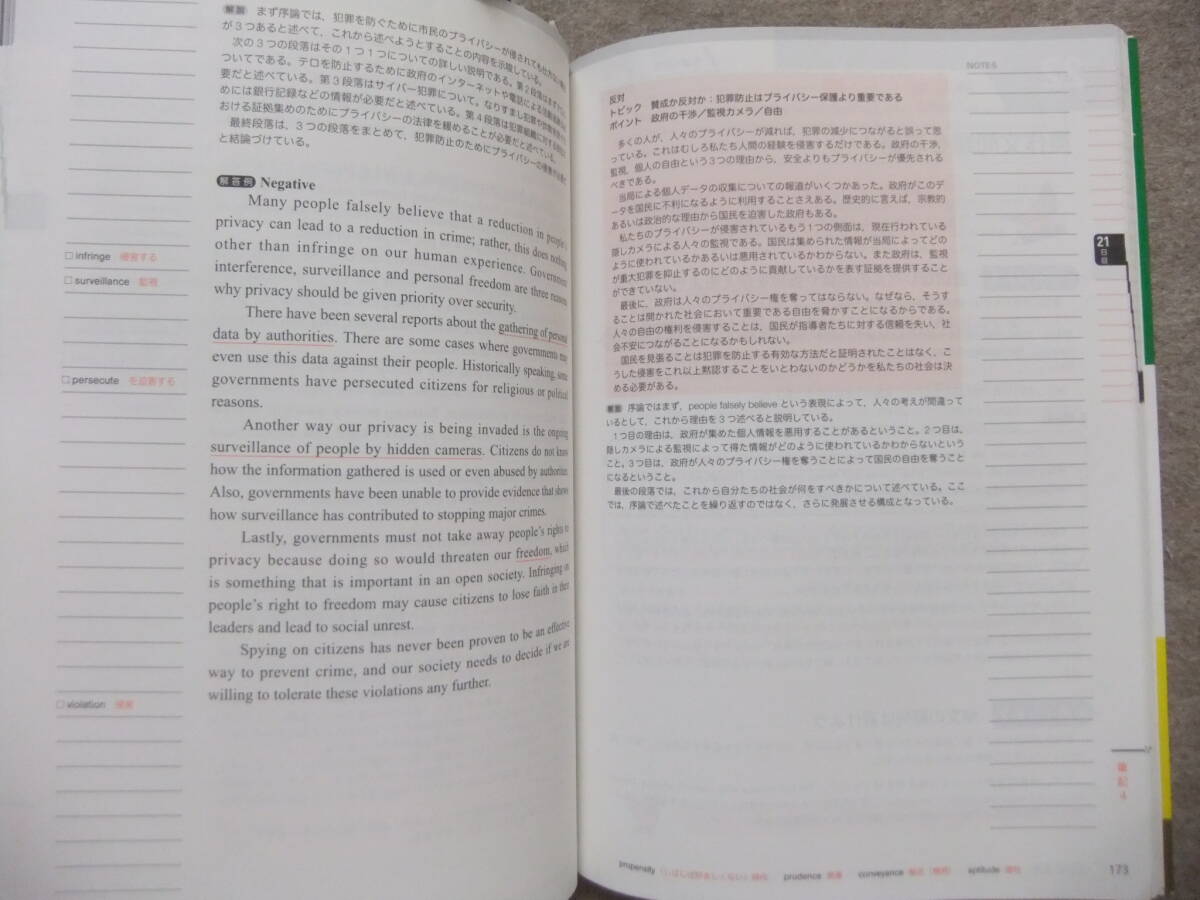 解説 まず序論では、犯罪を防ぐために市民のプライバシーが侵されても仕方ない
が3つあると述べて、これから述べようとすることの内容を示唆している。
次の3つの段落はその1つ1つについての詳しい説明である。第2段落はまずテロに
ついてである。テロを防止するために政府のインターネットや電話による
要だと述べている。第3段落はサイバー犯罪について。なりすまし犯罪や
めには銀行記録などの情報が必要だと述べている。第4段落は犯罪組織に対する
おける証拠集めのためにプライバシーの法律を緩めることが必要だと述べている。
最終段落は、3つの段落をまとめて、犯罪防止のためにプライバシーの侵害が
と結論づけている。
解答例 Negative
Many people falsely believe that a reduction in people's
privacy can lead to a reduction in crime; rather, this does nothing
other than infringe on our human experience. Government
interference, surveillance and personal freedom are three reasons
why privacy should be given priority over security.
There have been several reports about the gathering of personal
data by authorities. There are some cases where governments may
even use this data against their people. Historically speaking, some
governments have persecuted citizens for religious or political
reasons.
Another way our privacy is being invaded is the ongoing
surveillance of people by hidden cameras. Citizens do not know
how the information gathered is used or even abused by authorities.
Also, governments have been unable to provide evidence that shows
how surveillance has contributed to stopping major crimes.
Lastly, governments must not take away people's rights to
privacy because doing so would threaten our freedom, which
is something that is important in an open society. Infringing on
people's right to freedom may cause citizens to lose faith in their
leaders and lead to social unrest.
Spying on citizens has never been proven to be an effective
way to prevent crime, and our society needs to decide if we are
willing to tolerate these violations any further.
□ infringe 侵害する
□ surveillance 監視
□ persecute を迫害する
□ violation 侵害
NOTES
反対
トピック 賛成か反対か：犯罪防止はプライバシー保護より重要である
ポイント 政府の干渉／監視カメラ／自由
多くの人が、人々のプライバシーが減れば、犯罪の減少につながると誤って思
っている。これはむしろ私たち人間の経験を侵害するだけである。政府の干渉、
監視、個人の自由という3つの理由から、安全よりもプライバシーが優先される
べきである。
当局による個人データの収集についての報道がいくつかあった。政府がこのデ
ータを国民に不利になるように利用することさえある。歴史的に言えば、宗教的
あるいは政治的な理由から国民を迫害した政府もある。
私たちのプライバシーが侵害されているもう1つの側面は、現在行われている
隠しカメラによる人々の監視である。国民は集められた情報が当局によってどの
ように使われているかあるいは悪用されているかわからない。また政府は、監視
が重大犯罪を抑止するのにどのように貢献しているかを表す証拠を提供すること
ができていない。
最後に、政府は人々のプライバシー権を奪ってはならない。なぜなら、そうす
ることは開かれた社会において重要である自由を脅かすことになるからである。
人々の自由の権利を侵害することは、国民が指導者たちに対する信頼を失い、社
会不安につながることになるかもしれない。
国民を見張ることは犯罪を防止する有効な方法だと証明されたことはなく、こ
うした侵害をこれ以上黙認することをいとわないのかどうかを私たちの社会は決
める必要がある。
解説 序論ではまず、people falsely believe という表現によって、人々の考えが間違って
いるとして、これから理由を3つ述べると説明している。
1つ目の理由は、政府が集めた個人情報を悪用することがあるということ。2つ目は、
隠しカメラによる監視によって得た情報がどのように使われているかわからないという
こと。3つ目は、政府が人々のプライバシー権を奪うことによって国民の自由を奪うこと
になるということ。
最後の段落では、これから自分たちの社会が何をすべきかについて述べている。ここ
では、序論で述べたことを繰り返すのではなく、さらに発展させる構成となっている。
21
日目
筆記4
propensity (しばしば好ましくない) 傾向 prudence conveyance aptitude
173